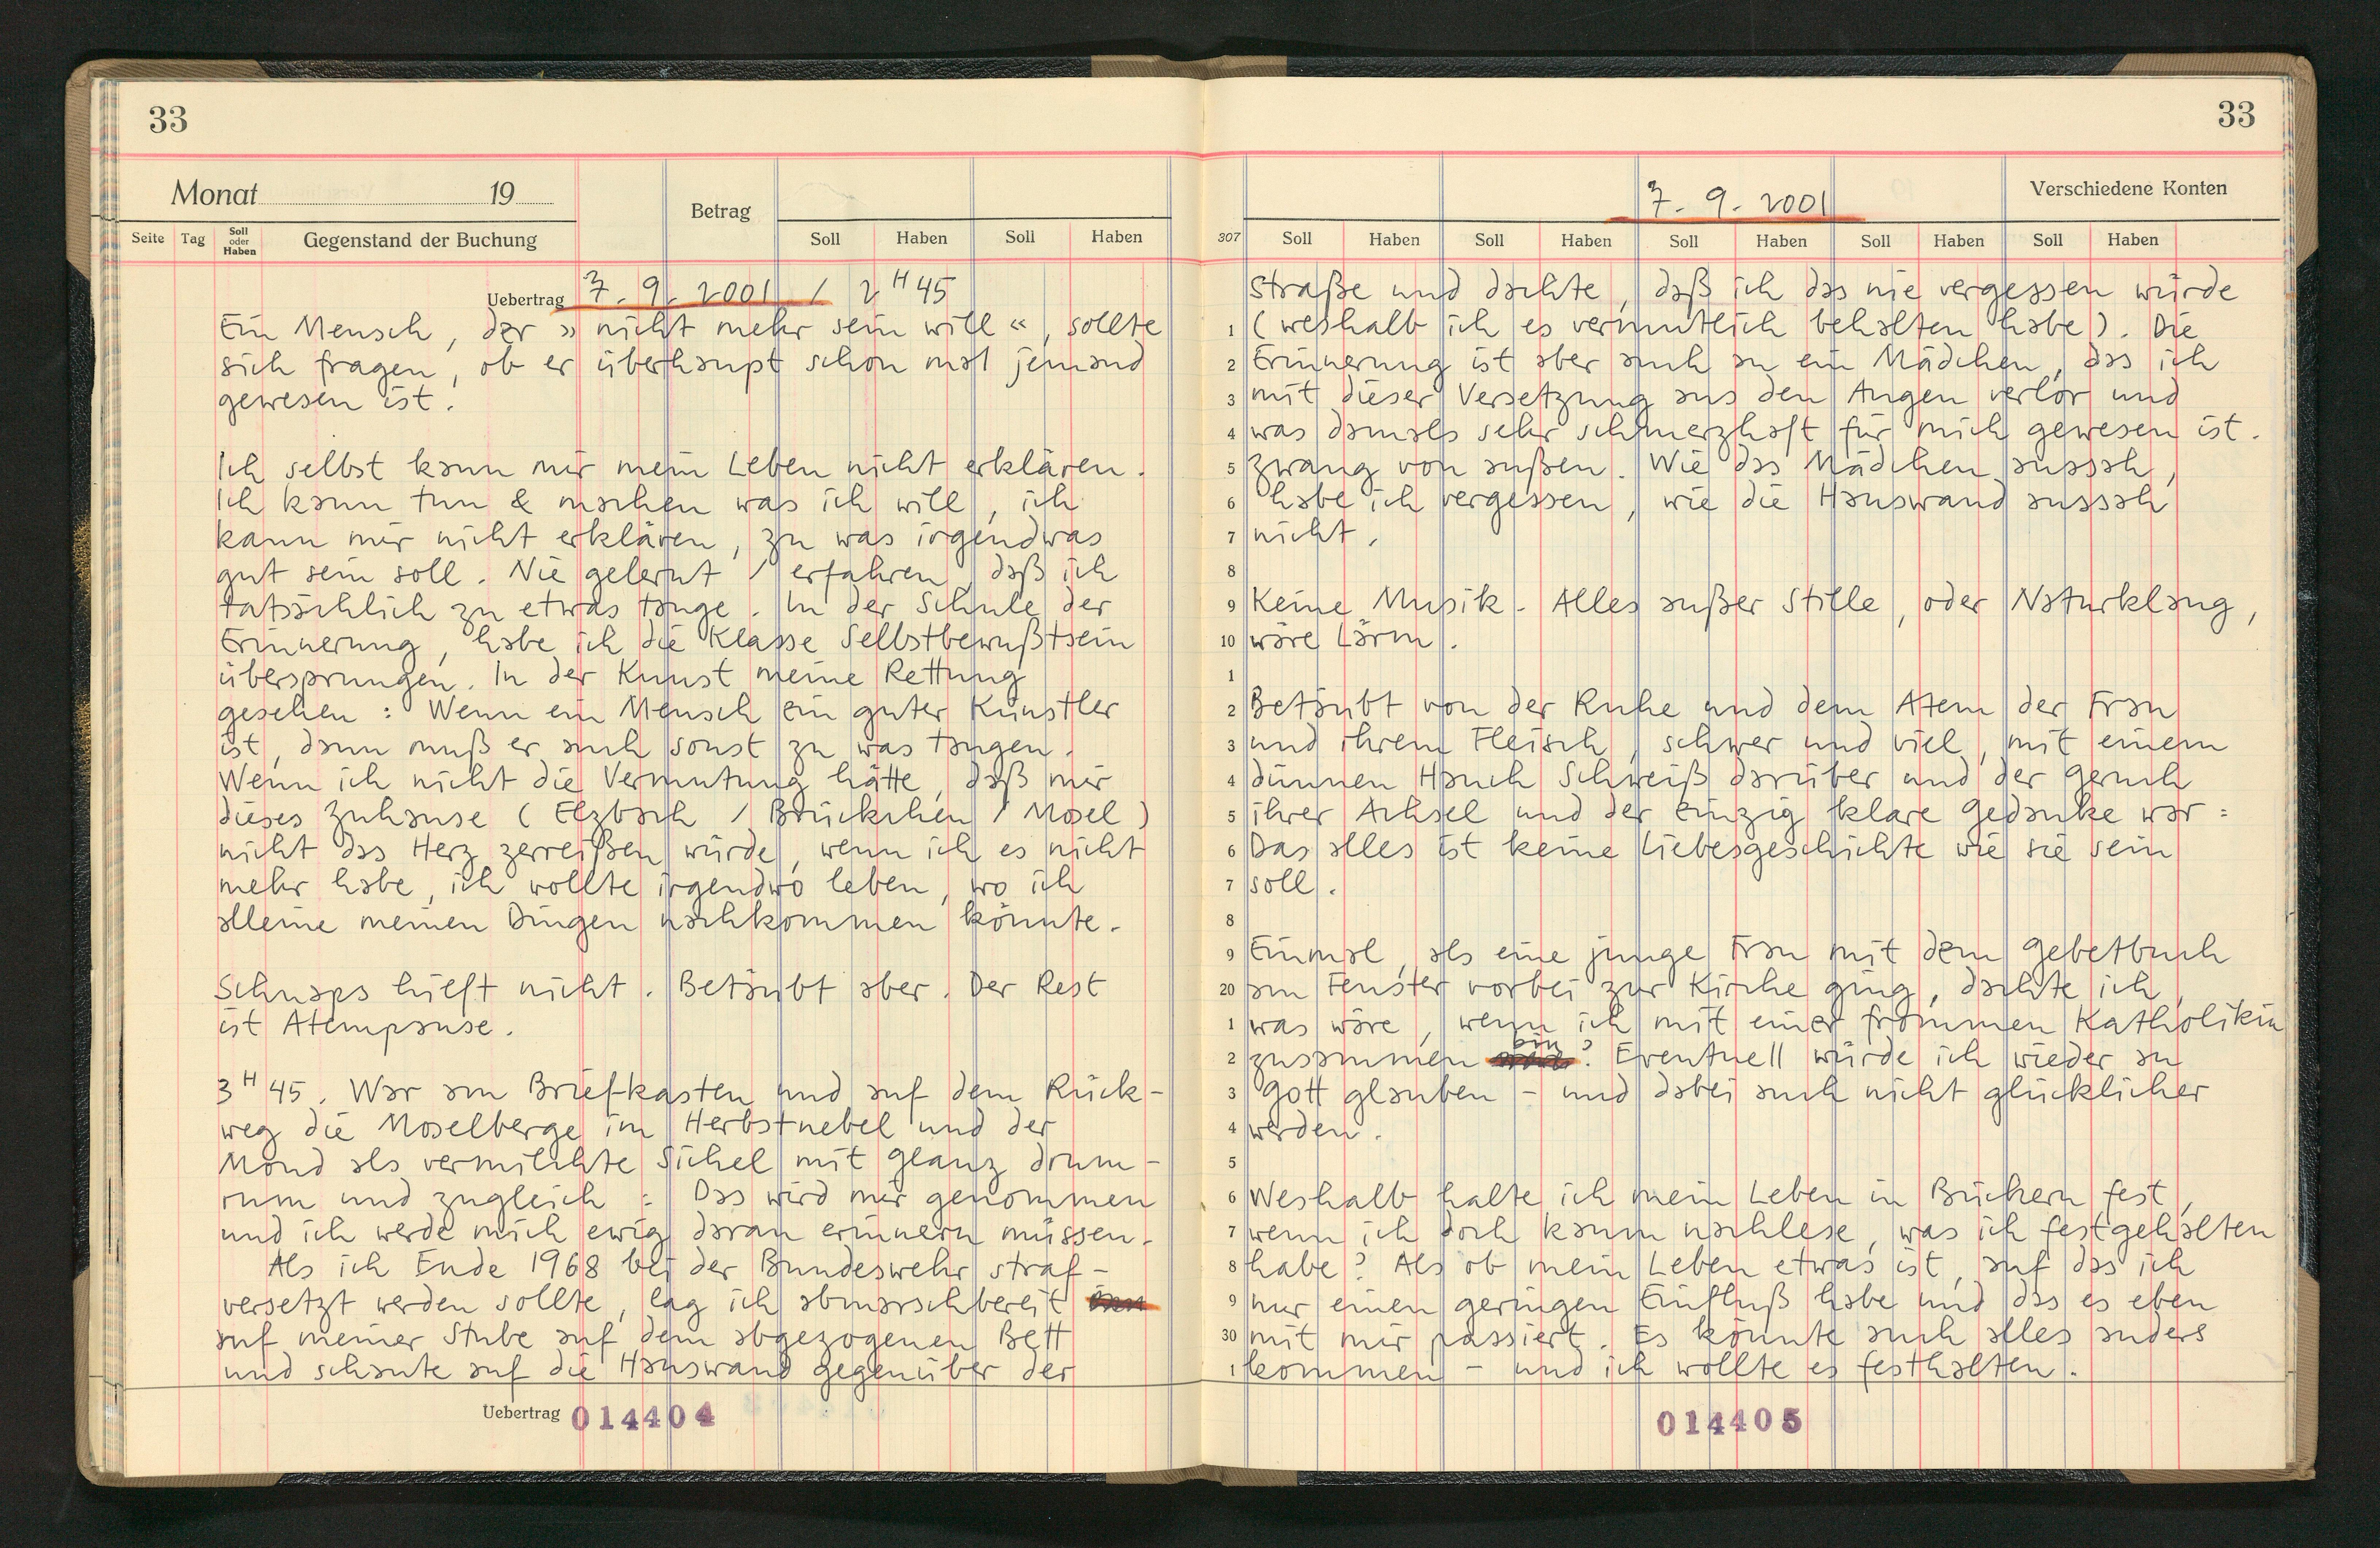 33
Monat 19
Betrag
Seite Tag Soll oder Haben Gegenstand der Buchung Soll Haben Soll Haben
Uebertrag 7. 9. 2001 / 2 H 45
Ein Mensch, der »nicht mehr sein will«, sollte
sich fragen, ob er überhaupt schon mal jemand
gewesen ist.
Ich selbst kann mir mein Leben nicht erklären.
Ich kann tun & machen was ich will, ich
kann mir nicht erklären, zu was irgendwas
gut sein soll. Nie gelernt / erfahren, daß ich
tatsächlich zu etwas tauge. In der Schule der
Erinnerung, habe ich die Klasse Selbstbewußtsein
übersprungen. In der Kunst meine Rettung
gesehen: Wenn ein Mensch ein guter Künstler
ist, dann muß er auch sonst zu was taugen.
Wenn ich nicht die Vermutung hätte, daß mir
dieses Zuhause (Elzbach / Brückchen / Mosel)
nicht das Herz zerreißen würde, wenn ich es nicht
mehr habe, ich wollte irgendwo leben, wo ich
alleine meinen Dingen nachkommen könnte.
Schnaps hilft nicht. Betäubt aber. Der Rest
ist Atempause.
3 H 45. War am Briefkasten und auf dem Rück-
weg die Moselberge im Herbstnebel und der
Mond als vermilchte Sichel mit Glanz drum-
rum und zugleich: Das wird mir genommen
und ich werde mich ewig daran erinnern müssen.
Als ich Ende 1968 bei der Bundeswehr straf-
versetzt werden sollte, lag ich abmarschbereit
auf meiner Stube auf dem abgezogenen Bett
und schaute auf die Hauswand gegenüber der
Uebertrag 014404
33
7. 9. 2001 Verschiedene Konten
307 Soll Haben Soll Haben Soll Haben Soll Haben Soll Haben
Straße und dachte, daß ich das nie vergessen würde
1 (weshalb ich es vermutlich behalten habe). Die
2 Erinnerung ist aber auch an ein Mädchen, das ich
3 mit dieser Versetzung aus den Augen verlor und
4 was damals sehr schmerzhaft für mich gewesen ist.
5 Zwang von außen. Wie das Mädchen aussah,
6 habe ich vergessen, wie die Hauswand aussah
7 nicht.
8
9 Keine Musik. Alles außer Stille, oder Naturklang,
10 wäre Lärm.
1
2 Betäubt von der Ruhe und dem Atem der Frau
3 und ihrem Fleisch, schwer und viel, mit einem
4 dünnen Hauch Schweiß darüber und der Geruch
5 ihrer Achsel und der einzig klare Gedanke war:
6 Das alles ist keine Liebesgeschichte wie sie sein
7 soll.
8
9 Einmal, als eine junge Frau mit dem Gebetbuch
20 am Fenster vorbei zur Kirche ging, dachte ich,
1 was wäre, wenn ich mit einer frommen Katholikin
2 zusammen bin? Eventuell würde ich wieder an
3 Gott glauben – und dabei auch nicht glücklicher
4 werden.
5
6 Weshalb halte ich mein Leben in Büchern fest,
7 wenn ich doch kaum nachlese, was ich festgehalten
8 habe? Als ob mein Leben etwas ist, auf das ich
9 nur einen geringen Einfluß habe und das es eben
30 mit mir passiert. Es könnte auch alles anders
1 kommen – und ich wollte es festhalten.
014405